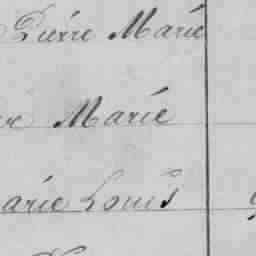 Pierre Marie
Marie
arie Louis